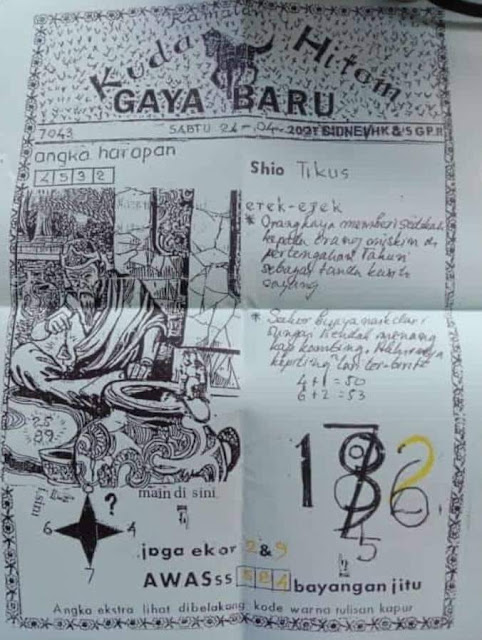 Ramalan
Kuda Hitam
GAYA BARU
7043 SABTU 24-04-2021 SIDNEY/HK & SGP.R
angka harapan
4532
Shio Tikus
erek-erek
* Orang kaya memberi sedekah
kepada orang miskin di
pertengahan Tahun
sebagai tanda kasih
sayang
* Seekor buaya naik dari
Sungai hendak
kambing.
kepiting lan
4 + 1 = 50
6 + 2 = 53
25
29
182
6
5
isini
?
main di sini
6 4
7
jaga ekor 2 & 9
AWASss 584 bayangan jitu
Angka ekstra lihat dibelakang kode warna tulisan kapur